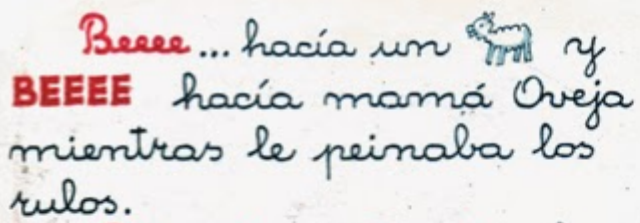 Beeee... hacía un y
BEEEE hacía mamá Oveja
mientras le peinaba los
rulos.